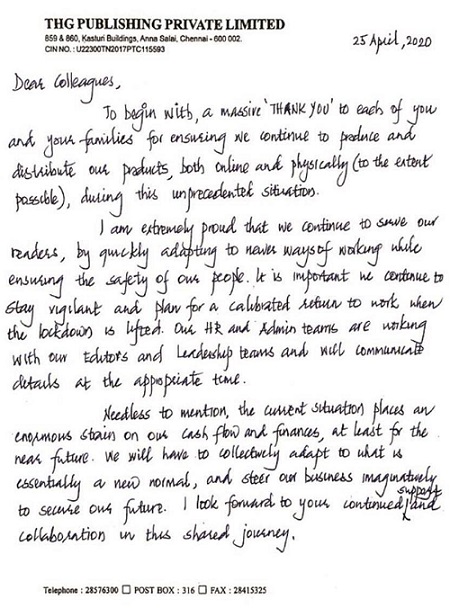 THG PUBLISHING PRIVATE LIMITED
859 & 860, Kasturi Buildings, Anna Salai, Chennai - 600 002.
CIN NO. : U22300TN2017PTC115593
25 April, 2020
Dear Colleagues,
To begin with, a massive 'THANK YOU' to each of you
and your families for ensuring we continue to produce and
distribute our products, both online and physically (to the extent
possible), during this unprecedented situation.
I am extremely proud that we continue to serve our
readers, by quickly adapting to newer ways of working while
ensuring the safety of our people. It is important we continue to
stay vigilant and plan for a calibrated return to work when
the lockdown is lifted. Our HR and Admin teams are working
with our Editors and Leadership teams and will communicate
details at the appropriate time.
Needless to mention, the current situation places an
enormous strain on our cash flow and finances, at least for the
near future. We will have to collectively adapt to what is
essentially a new normal, and steer our business imaginatively
to secure our future. I look forward to your continued support and
collaboration in this shared journey.
Telephone : 28576300 □ POST BOX : 316 □ FAX : 28415325